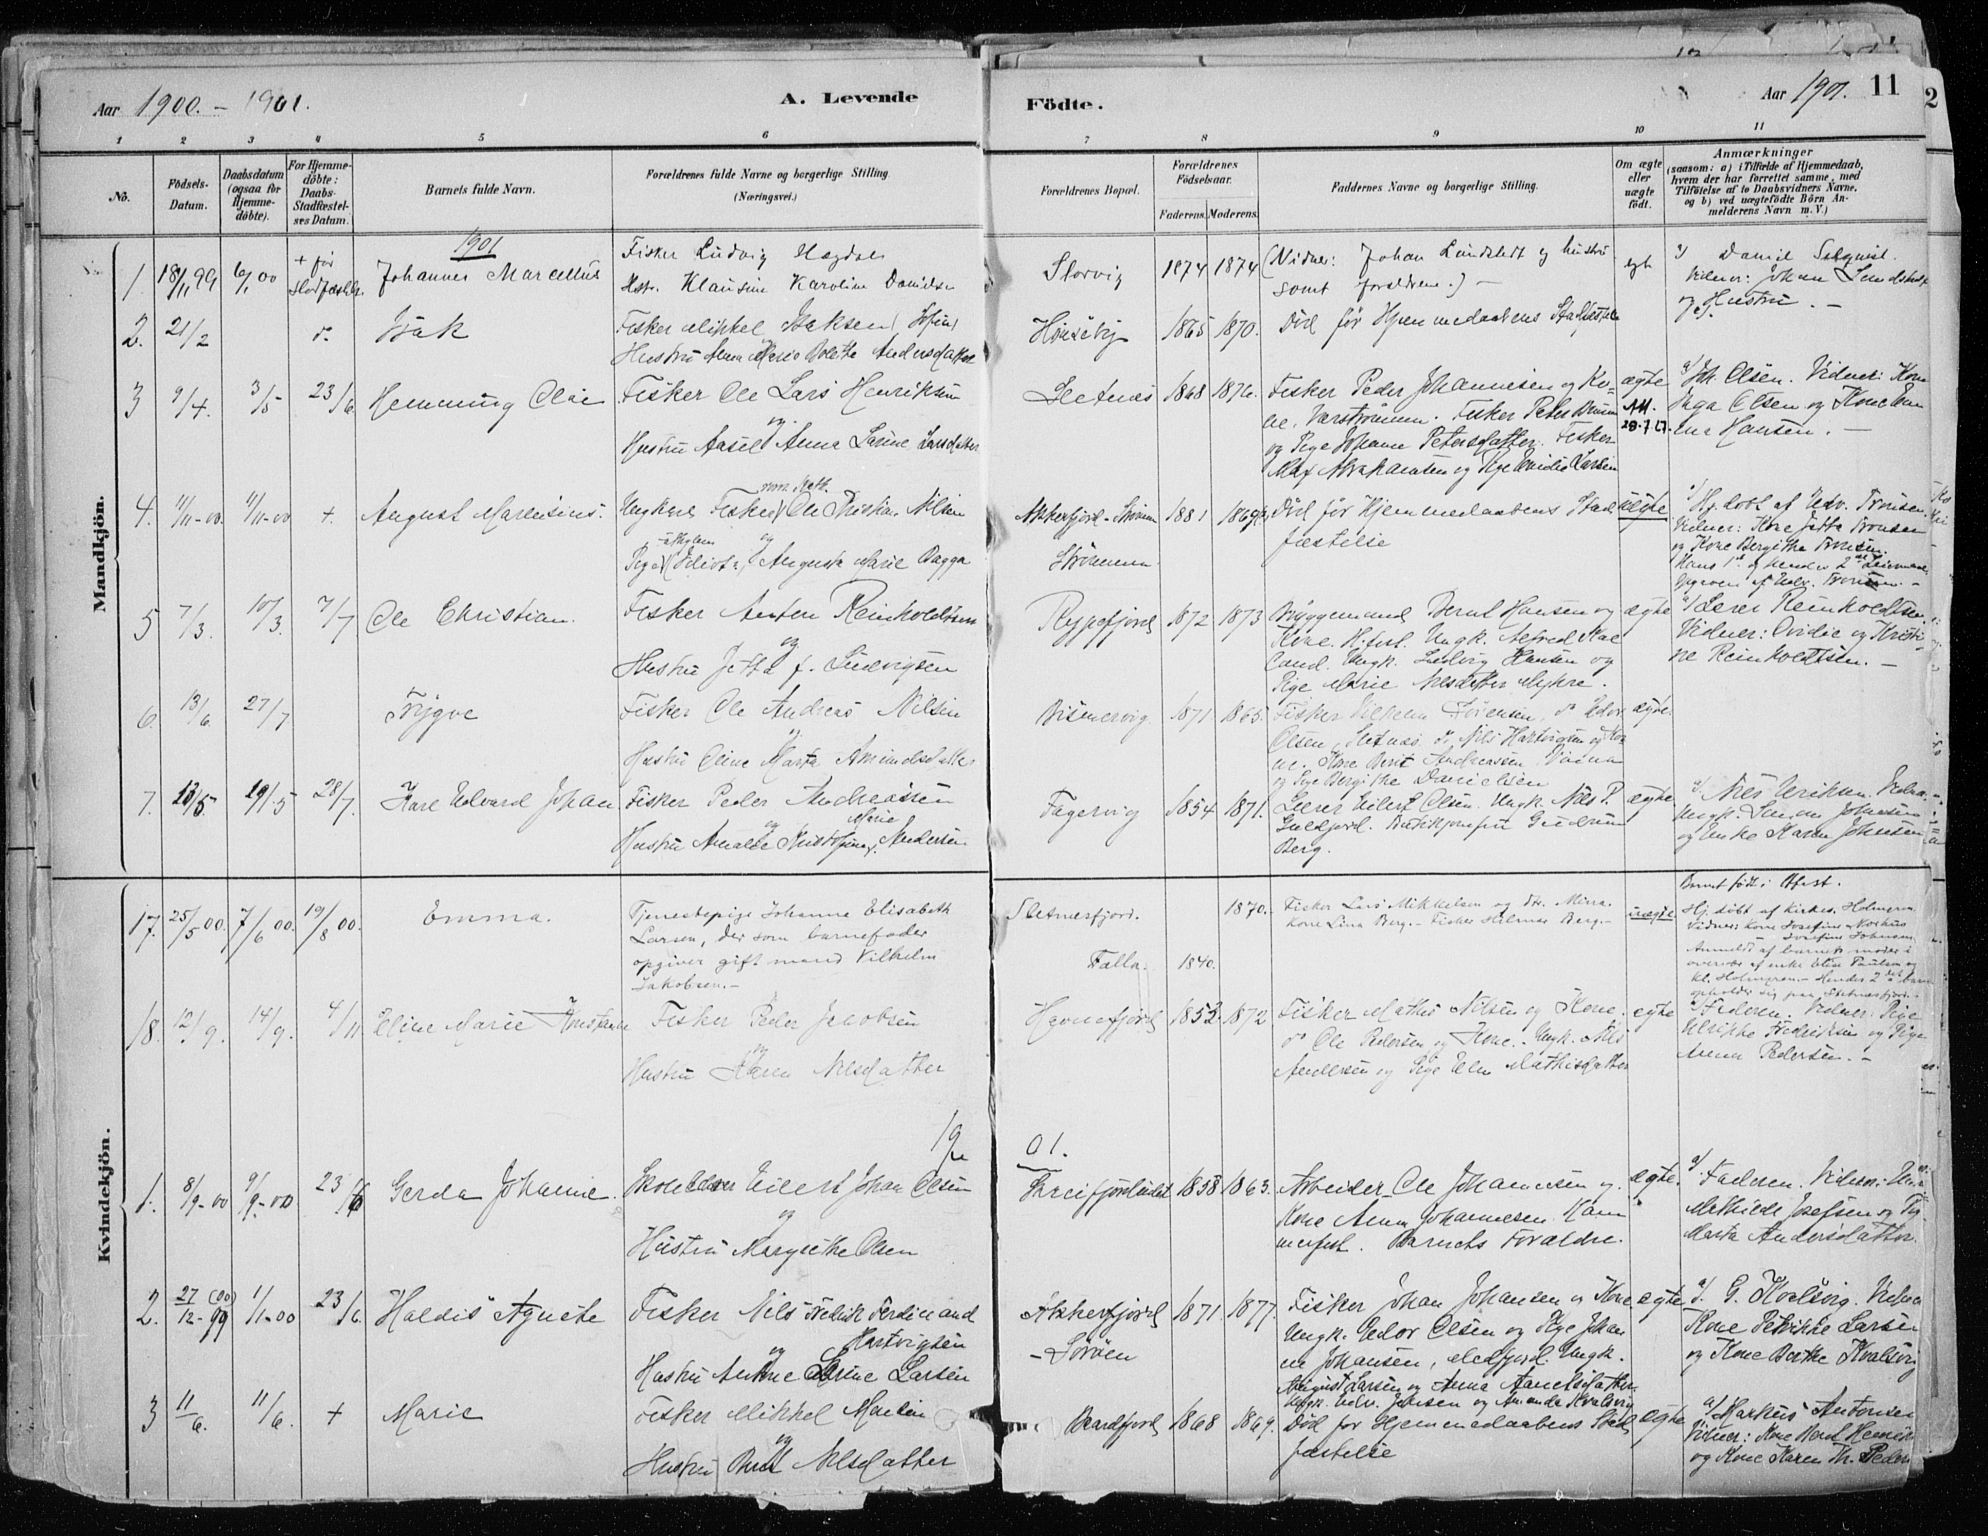 Aar 1900. - 1901.
A. Levende
Födte.
Aar 1901. 11
1 2 3 4 5 6 7 8 9 10 11
No.
Födsels-Datum.
Daabsdatum (ogsaa for Hjemme-döbte).
For Hjemme-döbte: Daabs-Stadfæstel-ses Datum.
Barnets fulde Navn.
Forældrenes fulde Navne og borgerlige Stilling.
(Næringsvei.)
Forældrenes Bopæl.
Forældrenes Födselsaar.
Faderens. Moderens.
Faddernes Navne og borgerlige Stilling.
Om ægte eller uægte födt.
Anmærkninger
(saasom: a) i Tilfælde af Hjemmedaab,
hvem der har forrettet samme, med
Tilföielse af to Daabsvidners Navne,
og b) ved uægtefödte Börn An-
melderens Navn m. V.)
Mandkjön.
1901
1. 18/11 99 6/1 00 + før Stadfæstels. Johannes Marcellus
Fisker Ludvig Hagdal
Hstr. Klausine Karoline Danielsen
Storvig 1874 1874
(Vidner: Johan Lundstedt og hustru
samt forældrene.) -
egt
a) Daniel
Vidner: Johan Lundstedt
og Hustru. -
2. 21/2 Isak
Fisker Mikkel Isaksen
Hustru Anna Marie Bolette Andersdatter
Hönseby 1865 1870.
Död før Hjemmedaabens Stadfæstelse
3 9/4. 3/5 23/6. Hemming Olai
Fisker Ole Lars Henriksen
og
Hustru Aasel Anna Larine Larsdatter
Sletnes 1868 1876.
Fisker Peder Johannesen og Ko-
ne, Varströmmen. Fisker Peter
og Pige Johanne Petersdatter. Fisker
Max Abrahamsen og Pige Ovidie Larsen
ægte
Joh. Olsen. Vidner: Kone
Inga Olsen og Kone
Hansen. -
4. 11/11-00. 11/11-00 +. August Marensius.
Ungkarl Fisker Ole Kristian Nilsen
og
Pige Augusta Marie Bagga
Akkerfjord - Ströммen
1881 1869
Död før Hjemmedaabens Stad
fæstelse
uægte
a) Hj. döbt af Edv. Tronsen
Vidner: Kone Jetta Tronsen
og Kone Bergithe Tronsen.
Hans 1ste og hendes 2det Leiermaal
Opgiven af Edv. Tronsen. -
5 7/3. 10/3. 7/7 Ole Christian.
Fisker Anton Reinholdtsen
og
Hustru Jetta f. Ludvigsen
Rypefjord 1872 1873
Bryggemand Bernt Hansen og
Kone, H.fest. Ungk. Alfred
Ungk. Ludvig Hansen og
Pige Marie Nilsdatter Myhre.
ægte
a) Lærer Reinholdtsen.
Vidner: Ovidie og Kristi-
ne Reinholdtsen. -
6. 13/6 27/7 Trygve
Fisker Ole Andreas Nilsen
og
Hustru Oline Marta Amundsdatter
Bismervig 1871 1865.
Fisker Vilhelm Sørensen, do Edv.
Olsen, Sletnes. do Nils Hartvigsen og Ko-
ne. Kone Berit Andreassen,
og Pige Bergithe Danielsen
ægte.
7. 10/5. 19/5 28/7. Kare Edvard Johan
Fisker Peder Andreassen
og Marie
Hustru Amalie f. Andersen
Fagervig 1854 1871.
Lærer Eilert Olsen. Ungk. Nils P.
Guldfjord. Butikjomfru Gudrun
Berg.
ægte
a) Nils Eriksen. Vidner:
Ungk. Simon Johnsen
og Enke Karen Johnsen
Kvindekjön.
17. 25/5 00. 7/6 00. 19/8 00. Emma.
Tjenestepige Johanna Elisabeth
Larsen, der som barnefader
opgiver gift mand Vilhelm
Jakobsen. -
Sletnesfjord.
Falla.
1840.
1870.
Fisker Lars Mikkelsen og dtr. Mina.
Kone Lina Berg. - Fisker Hilmar Berg. -
uægte
Barnet født i Hfest.
Hj. døbt af kirkes. Holmgren
Vidner: kone Josefine Norhus
Josefine Johansen
Anmeldt af barnets moder i
overvær af enke Elise Paulsen og
kl. Holmgren. Hendes 2det barn
opholder sig paa Sletnesfjord. -
18. 12/9. 14/9. 4/11 Eline Marie Konstanse
Fisker Peder Jacobsen
og
Hustru Karen Nilsdatter
Havnefjord 1853. 1872
Fisker Mathis Nilsen og Kone.
do Ole Pedersen og Kone. Ungk. Nils
Andersen og Pige Elen Mathisdatter
ægte
a) Faderen. Vidner: Pige
Ulrikke Fredriksen og Pige
Anna Pedersen. -
19 01.
1. 8/9-00 9/9-00 23/6 Gerda Johanne.
Skolelærer Eilert Johan Olsen
og
Hustru Margrethe Olsen
Kreifjordeidet 1858 1863.
Arbeider Ole Johannesen og
Kone Anna Johannesen. Ham
merfest. Barnets Forældre.
ægte.
a) Faderen. Vidner:
Mathilde Josefsen og Pig
Marta Andersdatter.
2. 27/12-99 (00) 1/1-00 23/6. Haldis Agnete
Fisker Nils Fredrik Ferdinand
Hartvigsen
og
Hustru Anne Larine Larsen
Akkerfjord
- Sørøen
1871 1877.
Fisker Johan Johansen og Kone
Ungk. Edv. Olsen og Pige Johan
ne Johansen, Mefjord. Ungk.
August Larsen og Anna Arnetsdatter.
Ungk. Edv. Jensen og Amanda Kvalsvig
ægte
a) J. G. Kvalsvig. Vidner
Kone Petrikke Larsen
og Kone Berthe Kvalsvig
3 11/6. 11/6. + Marie
Fisker Mikkel Monsen
og
Hustru Berit Nilsdatter
Baardfjord 1868 1869.
Död før Hjemmedaabens Stad
fæstelse
ægte
a) Markus Antonsen
Vidner: Kone Berit Henrik
og Kone Karen Th. Peders